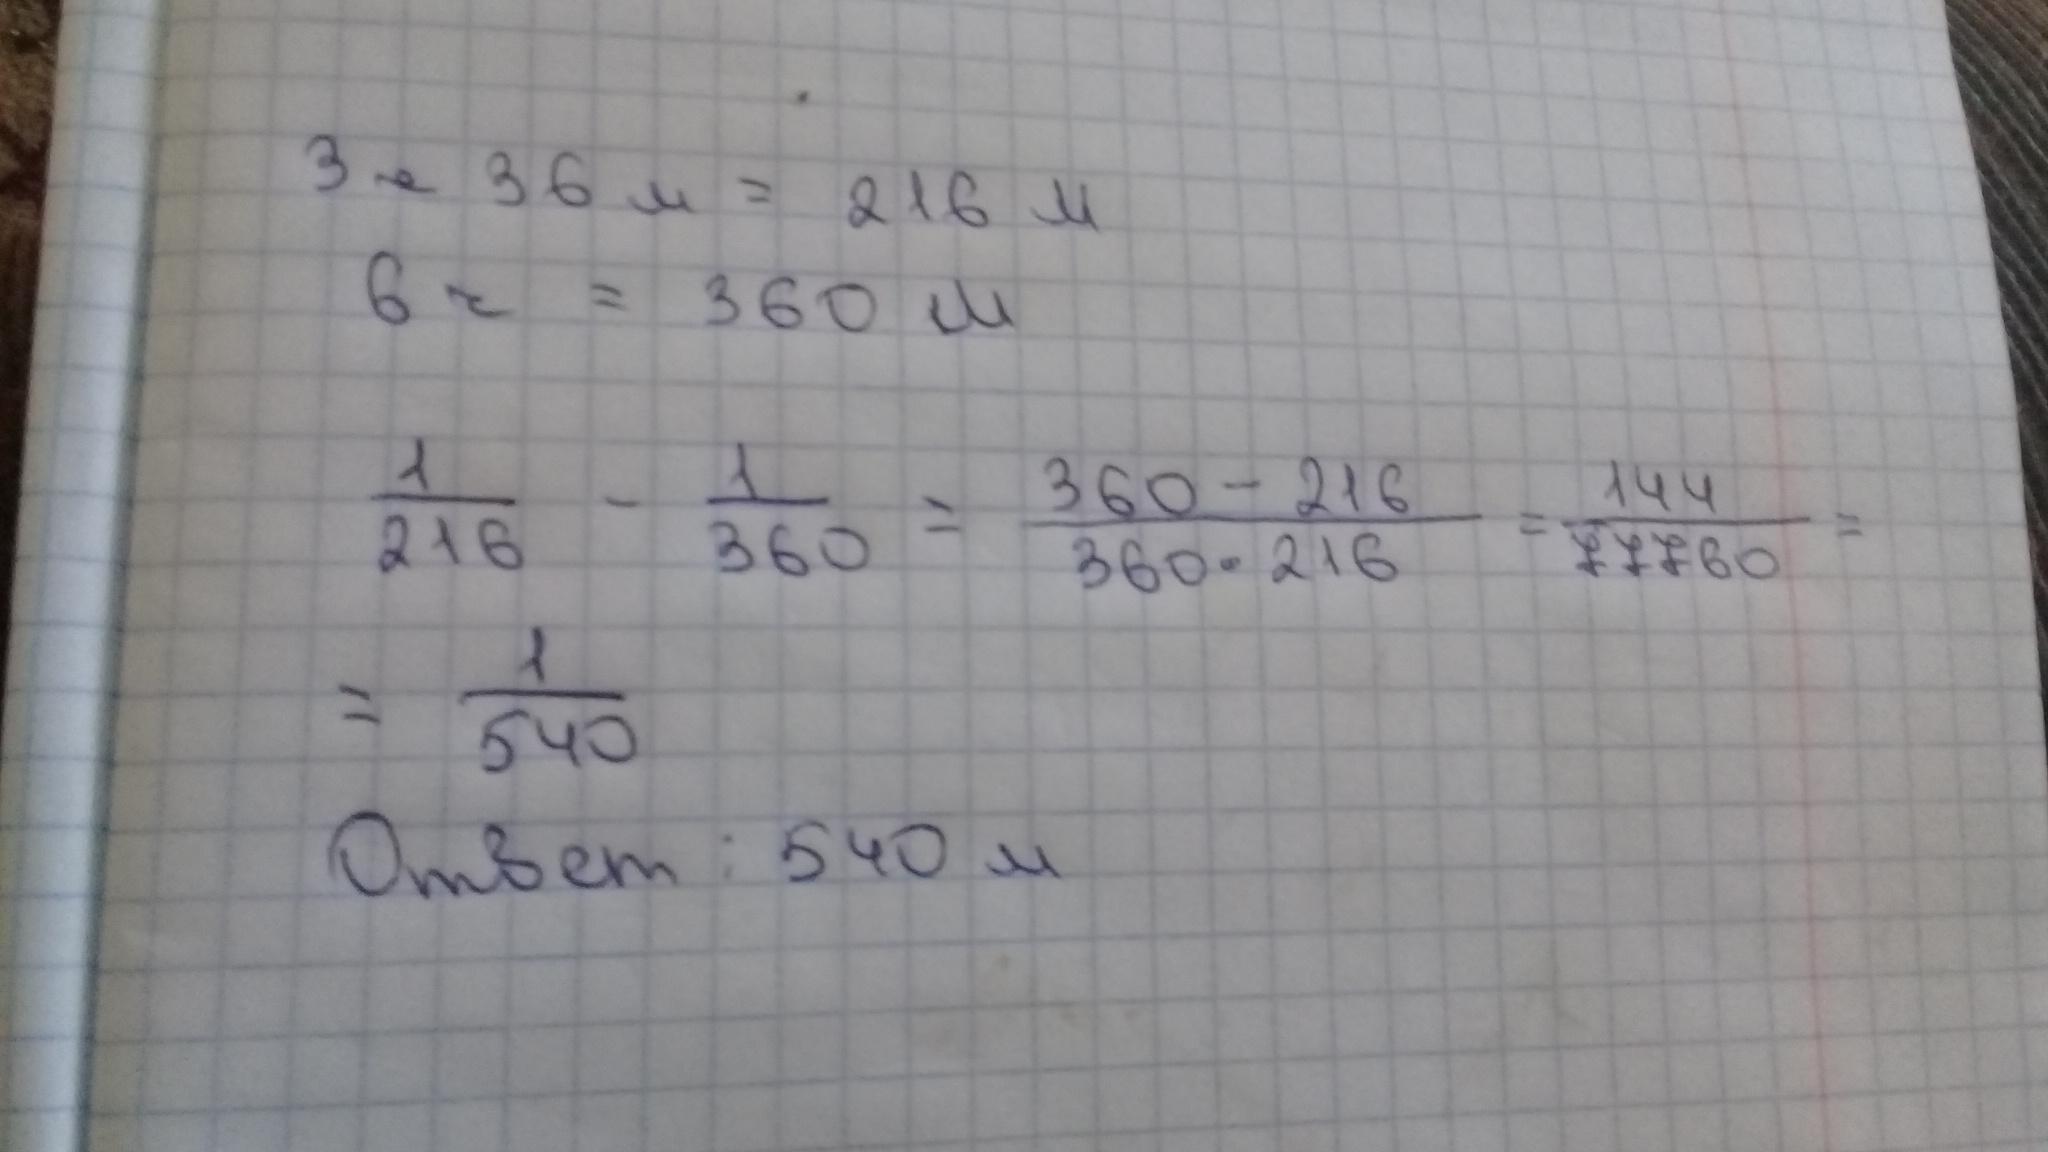 3 ч 36 м = 216 м
6 ч = 360 м
1/216 - 1/360 = (360 - 216)/(360 · 216) = 144/77760 =
= 1/540
Ответ: 540 м